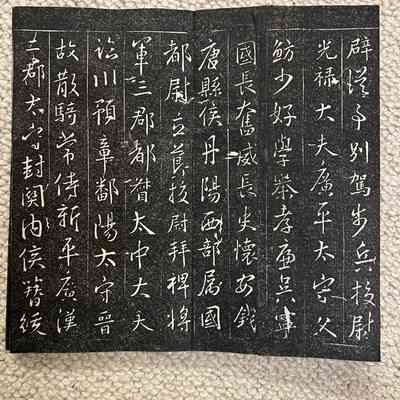 辟從事別駕步兵校尉
光祿大夫廣平太守父
魴少好學舉孝廉吳寧
國長奮威長史懷安錢
唐縣侯丹陽西部屬國
都尉立節校尉拜裨將
軍三郡都督太中大夫
臨川預章鄱陽太守晉
故散騎常侍新平廣漢
二郡太守封關內侯簪紱